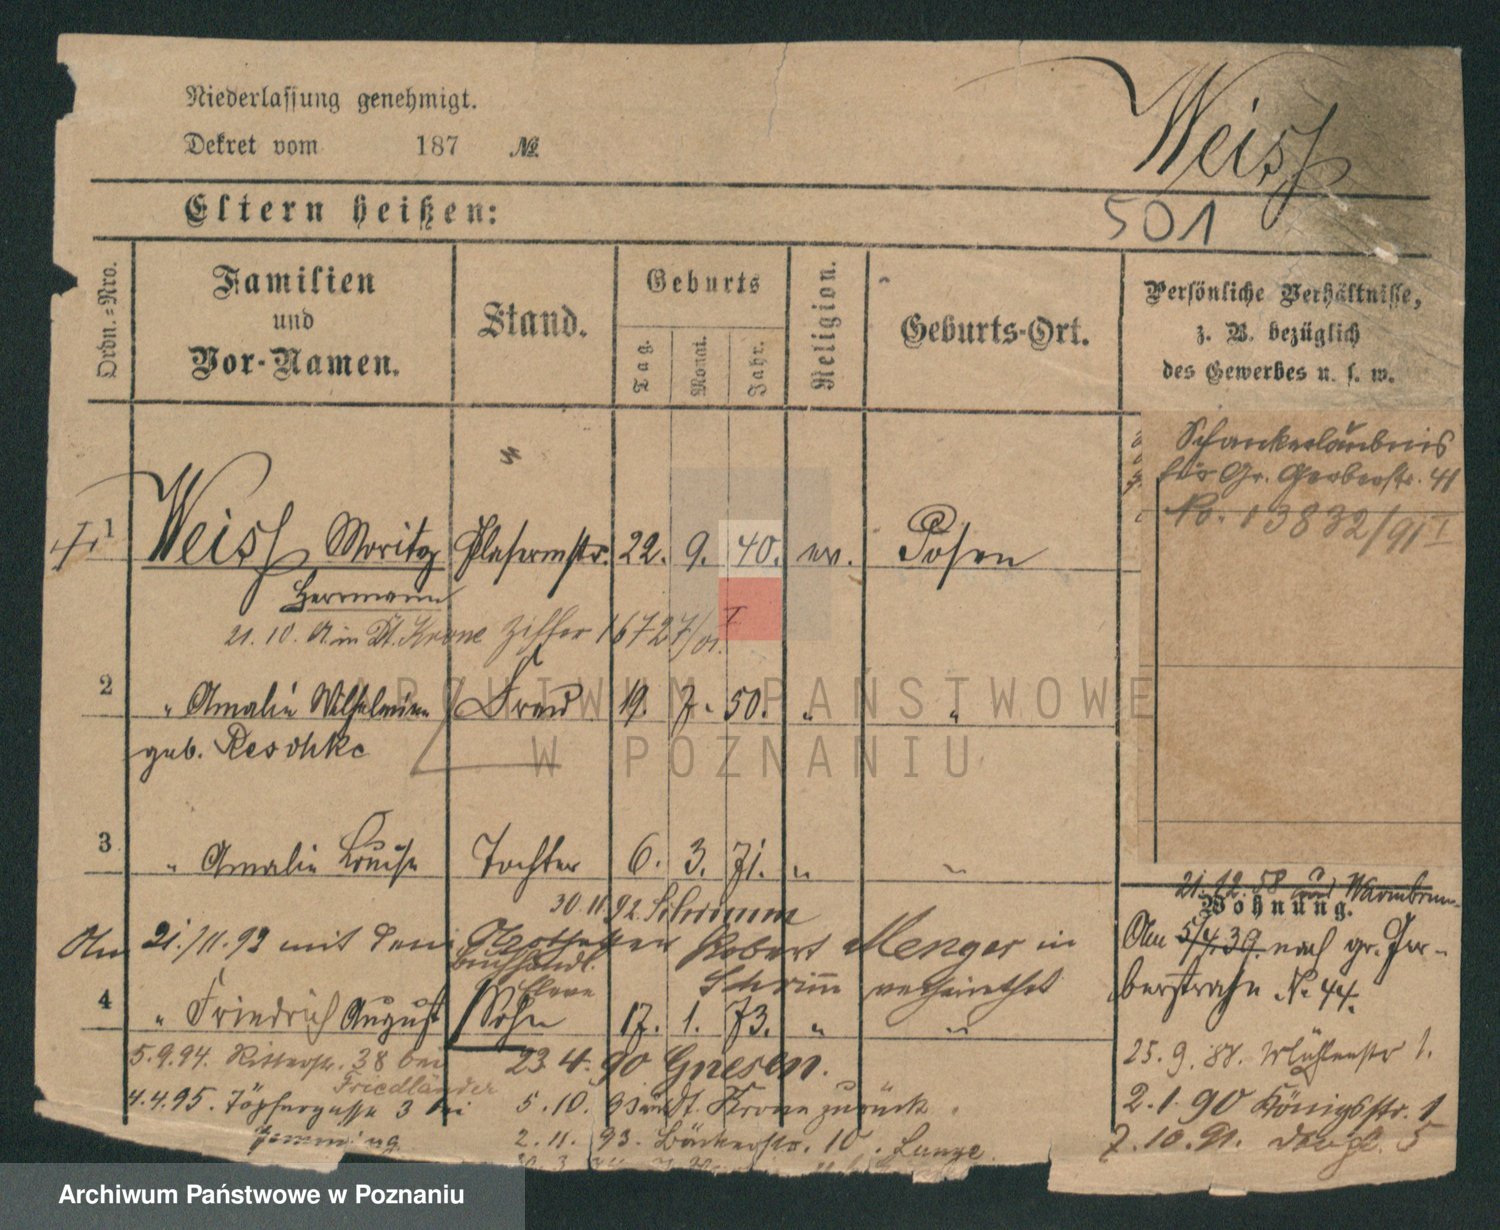 Niederlassung genehmigt.
Dekret vom 187 №
Weiss
Eltern heißen:
501
Ordn.-Nro.
Familien
und
Vor-Namen.
Stand.
Geburts
Tag.
Monat.
Jahr.
Religion.
Geburts-Ort.
Persönliche Verhältnisse,
z. B. bezüglich
des Gewerbes u. s. w.
Schankerlaubnis
für Gr. Gerberstr. 41
No. 13832/91 I
1 Weiss Moritz 22. 9. 40. ev. Posen
Herrmann
21. 10. in Dt. Krone Ziffer 16727/91. I
2 " Amalie Wilhelmine Frau 19. 7. 50. " "
geb. Reschke
3 " Amalie Louise Tochter 6. 3. 71. " "
30.11.92 Schrimm
21.12.58 Warmbrunn
Wohnung.
Am 21./11.92 mit dem Apotheker Robert Menger in
Buchhandl. Schrimm verheirathet
Eleve
Am 5/4 39. nach gr. Ger-
berstraße No 44.
4 " Friedrich August Sohn 17. 1. 73. " "
5.9.94. Ritterstr. 38 bei
Friedländer
23.4.90 Gnesen.
25.9.88. Mühlenstr 1.
4.4.95. Töpfergasse 3 bei
5.10. Dt. Krone zurück
2.1.90 Königsstr. 1
2.11.93. Bäckerstr. 10. Lange.
7.10.91. 5
ARCHIWUM PAŃSTWOWE
W POZNANIU
Archiwum Państwowe w Poznaniu